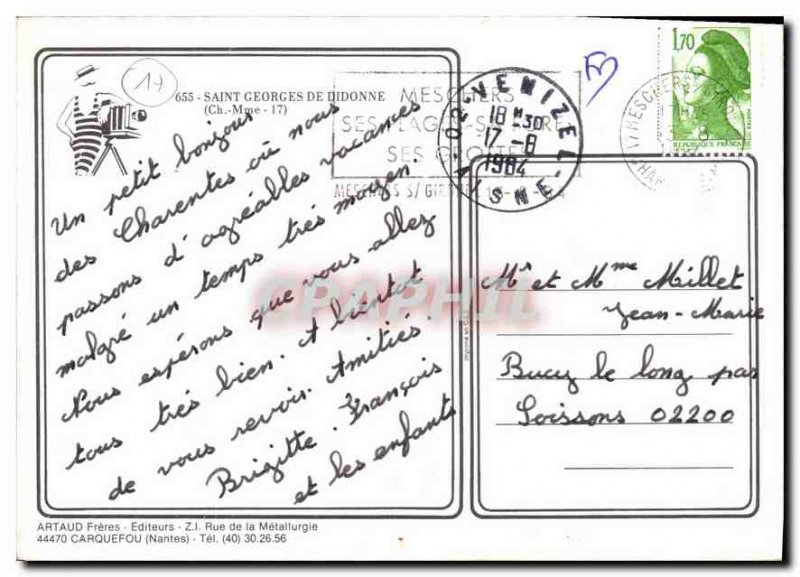 17
655 - SAINT GEORGES DE DIDONNE
(Ch.-Mme - 17)
Un petit bonjour
des Charentes où nous
passons d'agréables vacances
malgré un temps très moyen.
Nous espérons que vous allez
tous très bien. A bientôt
de vous revoir. Amitiés.
Brigitte. François
et les enfants
MESCHERS
SES GROTTES
MESCHERS S/ GIRONDE
02 VENIZEL
18 H 30
17 - 8
1984
AISNE
1,70
REPUBLIQUE FRANCAISE
Mr et Mme Millet
Jean-Marie
Bucy le long par
Soissons 02200
CPAPHIL
ARTAUD Frères - Editeurs - Z.I. Rue de la Métallurgie
44470 CARQUEFOU (Nantes) - Tél. (40) 30.26.56